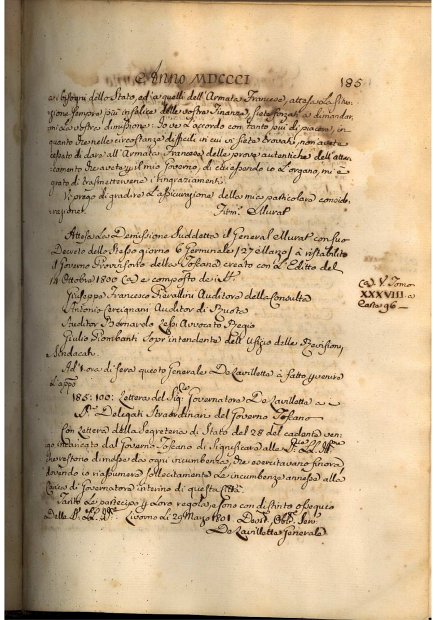 Anno MDCCCI
185
ai bisogni dello Stato, ed a quelli dell'Armata Francese, attesa la situa-
zione sempre più infelice delle vostre Finanze, siete forzati a dimandar-
mi la vostra dimissione. Io ve l'accordo con tanto più di piacere, in
quanto che nelle circostanze difficili in cui vi siete trovati, non avete
cessato di dare all'Armata Francese delle prove autentiche dell'atta-
camento che avete p il mio Governo, di cui essendo io l'organo, mi è
grato di trasmettervene i ringraziamenti.
Vi prego di gradire l'assicurazione della mia particolare conside-
razione. Firm. Murat
Attesa la Demissione suddetta il General Murat con suo
Decreto dello stesso giorno 6 Germinale (27 Marzo) à ristabilito
il Governo Provvisorio della Toscana creato con l'Editto del
14 Ottobre 1800 (a) e composto dei
Giuseppe Francesco Pierallini Auditore della Consulta
Antonio Sercignani Auditor di Ruota
Auditor Bernardo Lessi Avvocato Regio
Giulio Piombanti Soprintendente dell'Ufizio delle Revisioni, e
Sindacati.
(a) V. Tomo
XXXVIII a
Carta 96
Ad 1 ora di sera questo Generale De Lavillette à fatto pvenire
l'app
185: 100: Lettera del Sig. Governatore De Lavillette a i
Delegati Straordinari del Governo Toscano
Con Lettera della Segreteria di Stato del 28 del cadente ven-
go incaricato dal Governo Toscano di significare alle
che restorio dimesse da ogni incumbenza, che esercitavano finora
dovendo io riassumere sollecitamente le incumbenze annesse alla
Carica di Governatore interino di questa Città.
Tanto le partecipo p loro regola, e sono con distinto ossequio
Delle Livorno li 29 Marzo 1801 Devot. Obb. Serv.
De Lavillette Generale